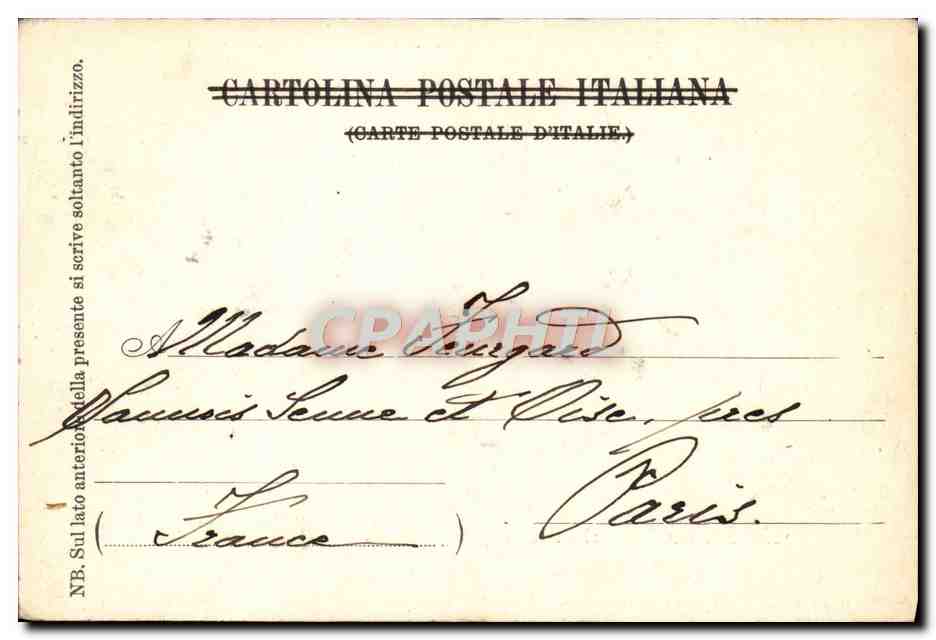 CARTOLINA POSTALE ITALIANA
(CARTE POSTALE D'ITALIE.)
NB. Sul lato anteriore della presente si scrive soltanto l'indirizzo.
CPAPHTL
A Madame
et Oise, pres
Paris.
(France)